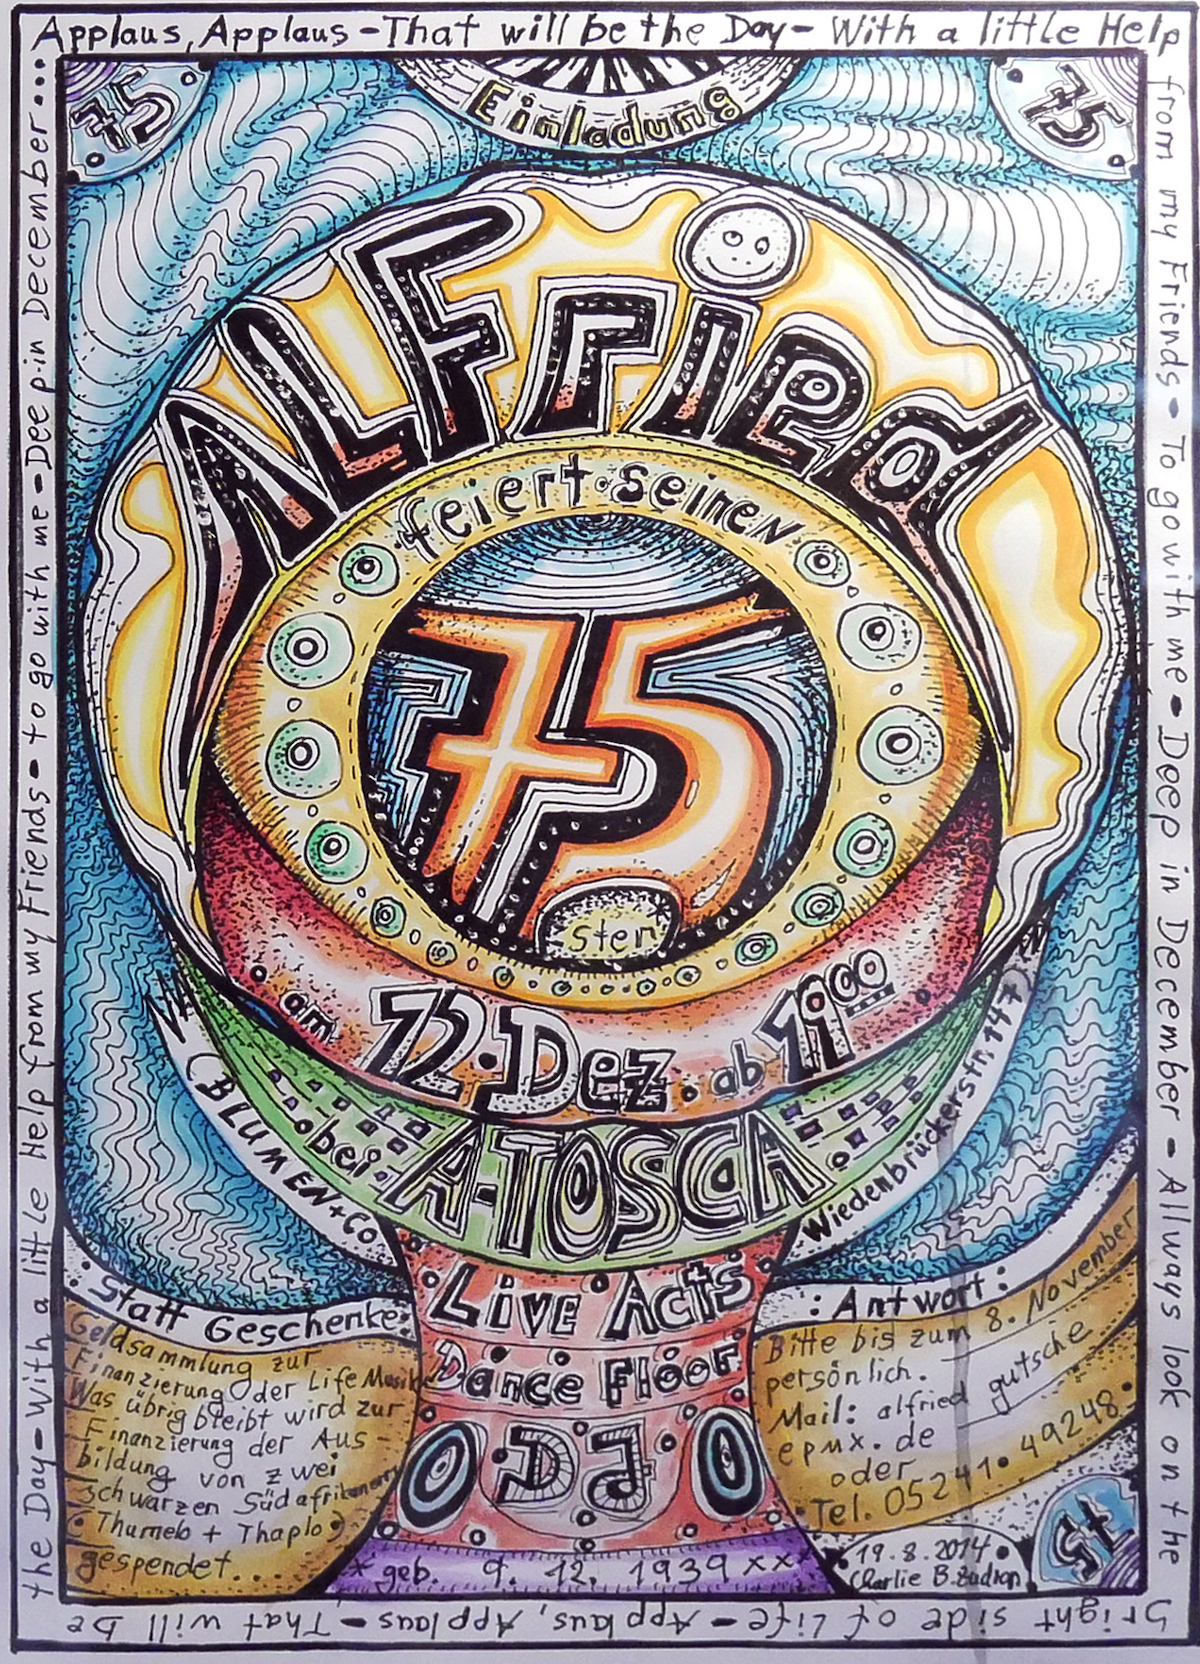 Applaus, Applaus - That will be the Day - With a little Help
from my Friends - To go with me - Deep in December - Allways look on the
bright side of Life - Applaus, Applaus - That will be
the Day - With a little Help from my Friends - to go with me - Deep in December...
75
Einladung
75
ALFried
feiert seinen
75
sten
am 12. Dez. ab 19 00
bei A-TOSCA
(BLUMEN + CO
Wiedenbrückerstr. 147)
Live Acts
Dance Floor
DJ
* geb. 9. 12. 1939 xxx
Statt Geschenke:
Geldsammlung zur
Finanzierung der Life Musik
Was übrig bleibt wird zur
Finanzierung der Aus-
bildung von zwei
schwarzen Südafrikanern
(Thumelo + Thaplo)
gespendet....
: Antwort :
Bitte bis zum 8. November
persönlich.
Mail: alfried gutsche
epmx.de
oder
Tel. 05241. 49248.
75
19.8.2014
Charlie B.